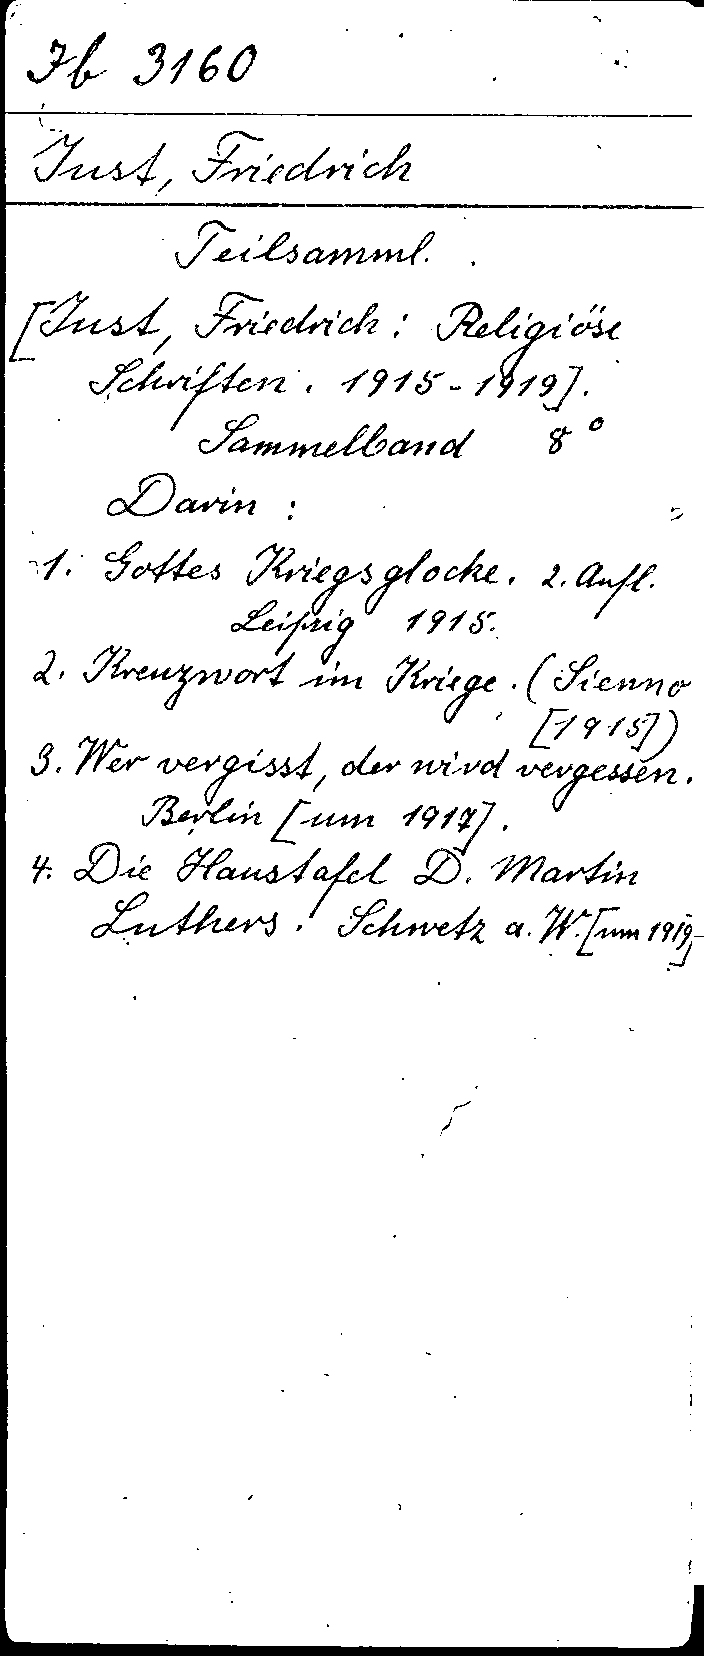 Jb 3160
Just, Friedrich
Teilsamml.
[Just, Friedrich: Religiöse
Schriften. 1915-1919].
Sammelband 8°
Darin:
1. Gottes Kriegsglocke. 2. Aufl.
Leipzig 1915.
2. Kreuzwort im Kriege. (Sienno
[1915])
3. Wer vergisst, der wird vergessen.
Berlin [um 1917].
4. Die Haustafel D. Martin
Luthers. Schwetz a. W. [um 1919]